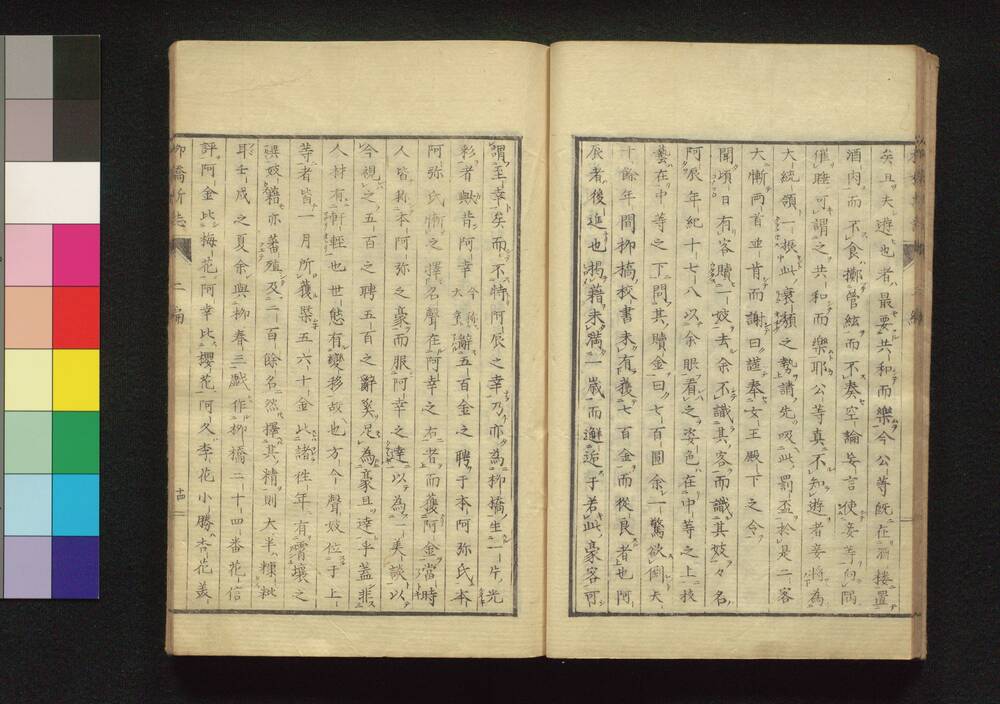 矣且夫遊也者最要共和而樂今公等既在酒樓置
酒肉而不食擲管絃而不奏空論妄言使妾等向隅
催睡可謂之共和而樂耶公等真不知遊者妾將為
大統領一振此衰頽之勢請先吸此罰盃於是二客
大慚両首並肯而謝曰謹奉女王殿下之令
聞頃日有客贖一妓去余不識其客而識其妓々名
阿辰年紀十七八以余眼看之姿色在中等之上技
藝在中等之下問其贖金曰七百圓余一驚欲倒夫
十餘年間柳橋校書未有獲七百金而從良者也阿
辰者後進也揭籍未満一歳而邂逅于若此豪客可
謂至幸矣而不特阿辰之幸乃亦為柳橋生一片光
彩者歟昔阿幸今稱大幸辭五百金之聘于本阿弥氏本
阿弥氏慚之擇名聲在阿幸之右者而獲阿金當時
人皆称本阿弥之豪而服阿幸之達以為一美談以
今視之五百之聘五百之辭奚足為豪且達乎蓋非
人材有軒輊也世態有變移故也方今聲妓位于上
等者皆一月所獲槩五六十金此諸徃年有霄壤之
異妓籍亦蕃殖及二百餘名然擇其精則大半糠粃
耳壬戌之夏余與柳春三戯作柳橋二十四番花信
評阿金比梅花阿幸比櫻花阿久李花小勝杏花美
柳橋新誌
二編
十四